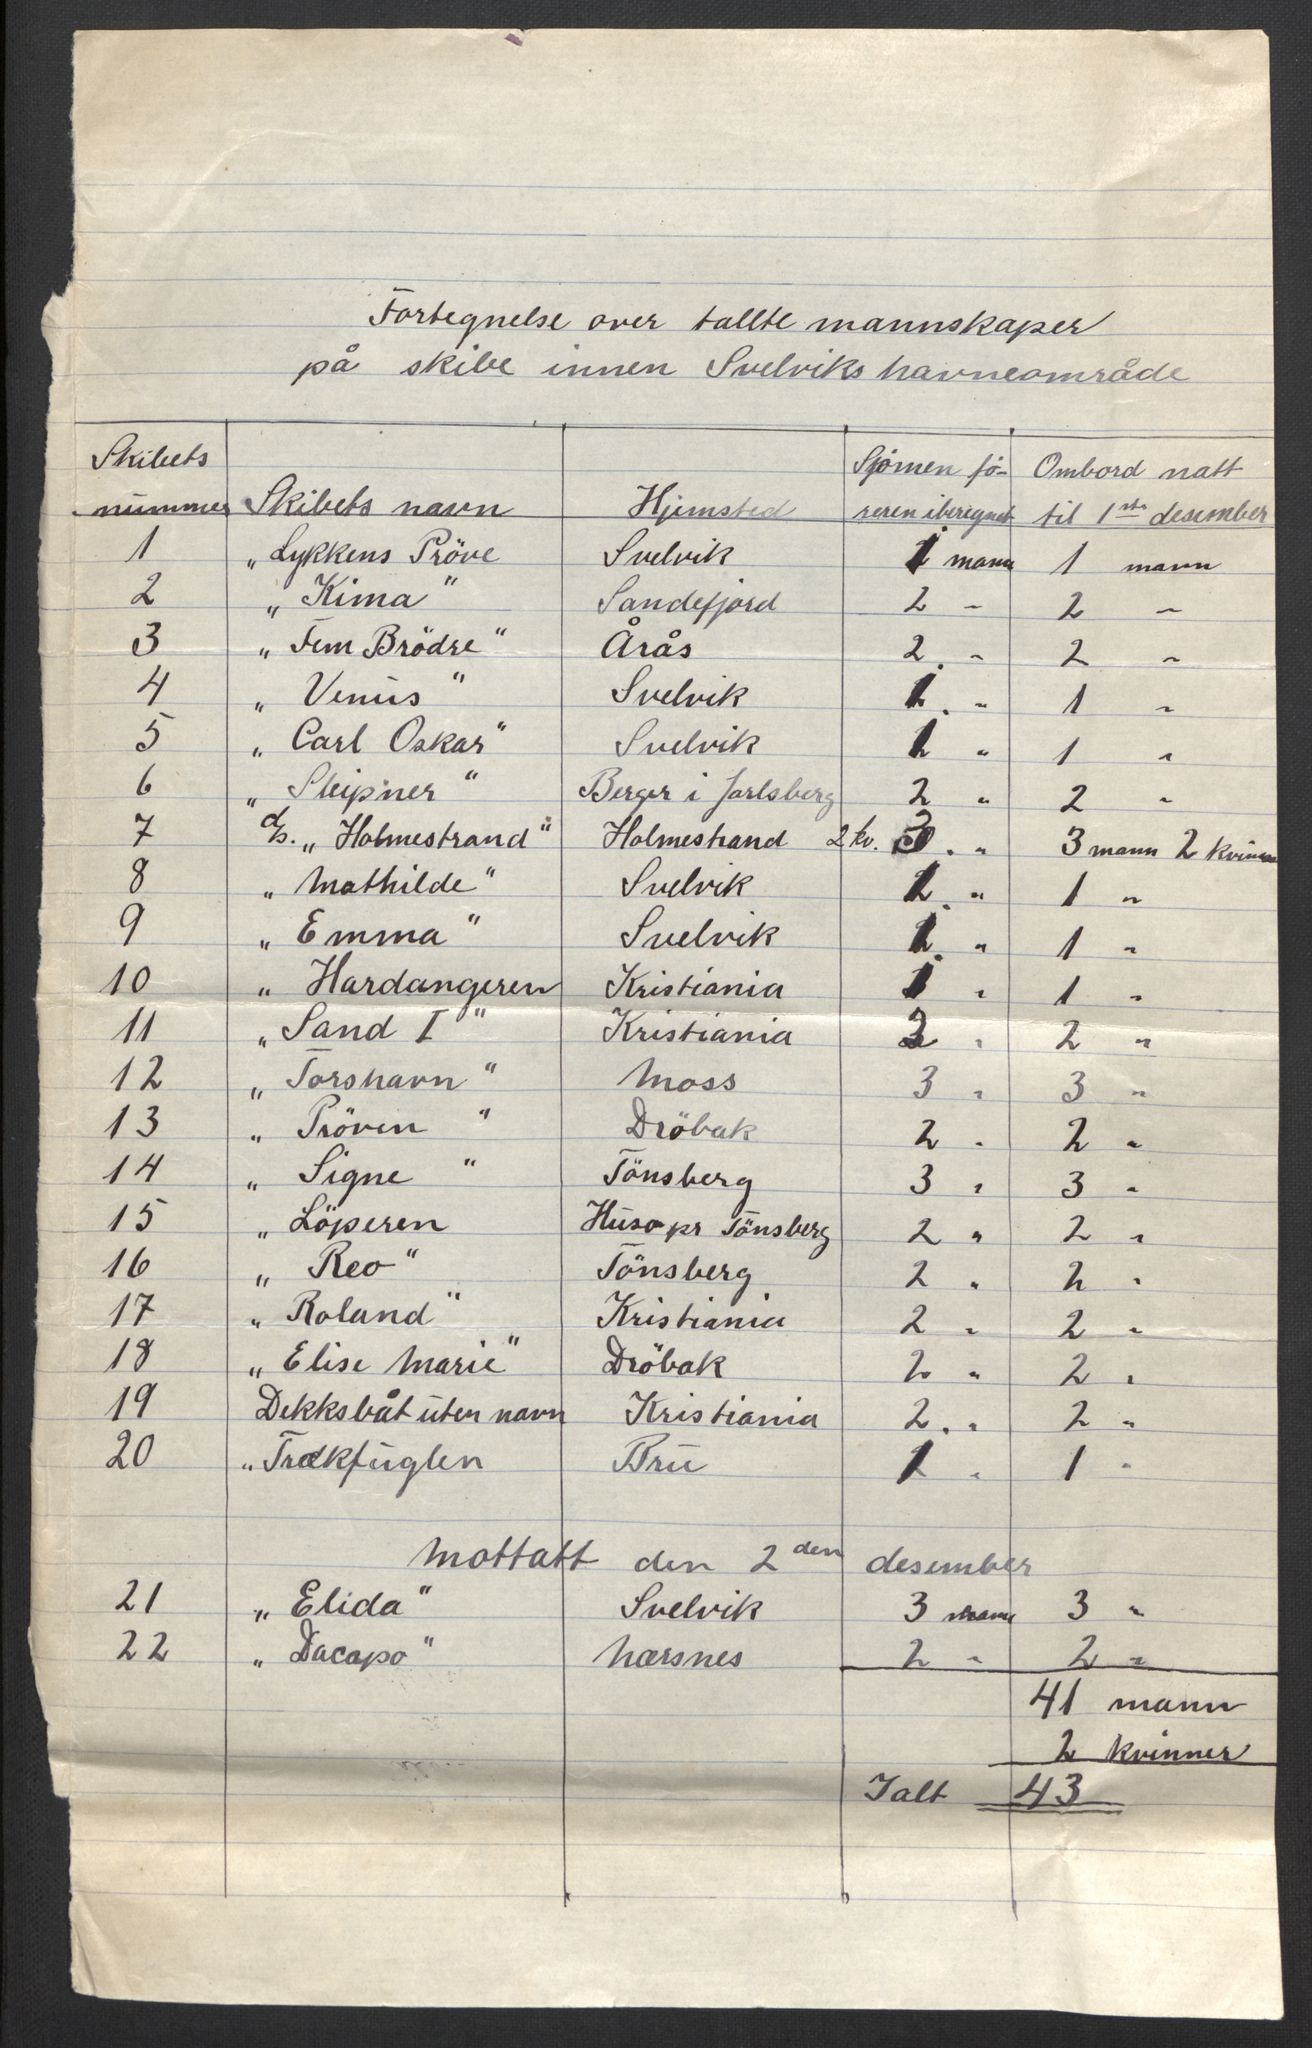 Fortegnelse over tallte mannskaper
på skibe innen Svelviks havneområde
Skibets nummer Skibets navn Hjemsted Sjömen fö- reren iberegnet Ombord natt til 1ste desember
1 „Lykkens Pröve Svelvik 1 mann 1 mann
2 „Kima" Sandefjord 2 " 2 "
3 „Fem Brödre" Årås 2 " 2 "
4 „Venus" Svelvik 1 " 1 "
5 „Carl Oskar" Svelvik 1 " 1 "
6 „Sleipner" Berger i Jarlsberg 2 " 2 "
7 d/s. „Holmestrand" Holmestrand 2 kv. 3 " 3 mann 2 kvinner
8 „Mathilde" Svelvik 1 " 1 "
9 „Emma" Svelvik 1 " 1 "
10 „Hardangeren Kristiania 1 " 1 "
11 „Sand I" Kristiania 2 " 2 "
12 „Torshavn" Moss 3 " 3 "
13 „Pröven" Dröbak 2 " 2 "
14 „Signe" Tönsberg 3 " 3 "
15 „Löperen Husø pr Tönsberg 2 " 2 "
16 „Reo" Tönsberg 2 " 2 "
17 „Roland" Kristiania 2 " 2 "
18 „Elise Marie" Dröbak 2 " 2 "
19 Dekksbåt uten navn Kristiania 2 " 2 "
20 „Trækfuglen Bru 1 " 1 "
Mottatt den 2den desember
21 „Elida" Svelvik 3 mann 3 "
22 „Dacapo" Nærsnes 2 " 2 "
41 mann
2 kvinner
Ialt 43